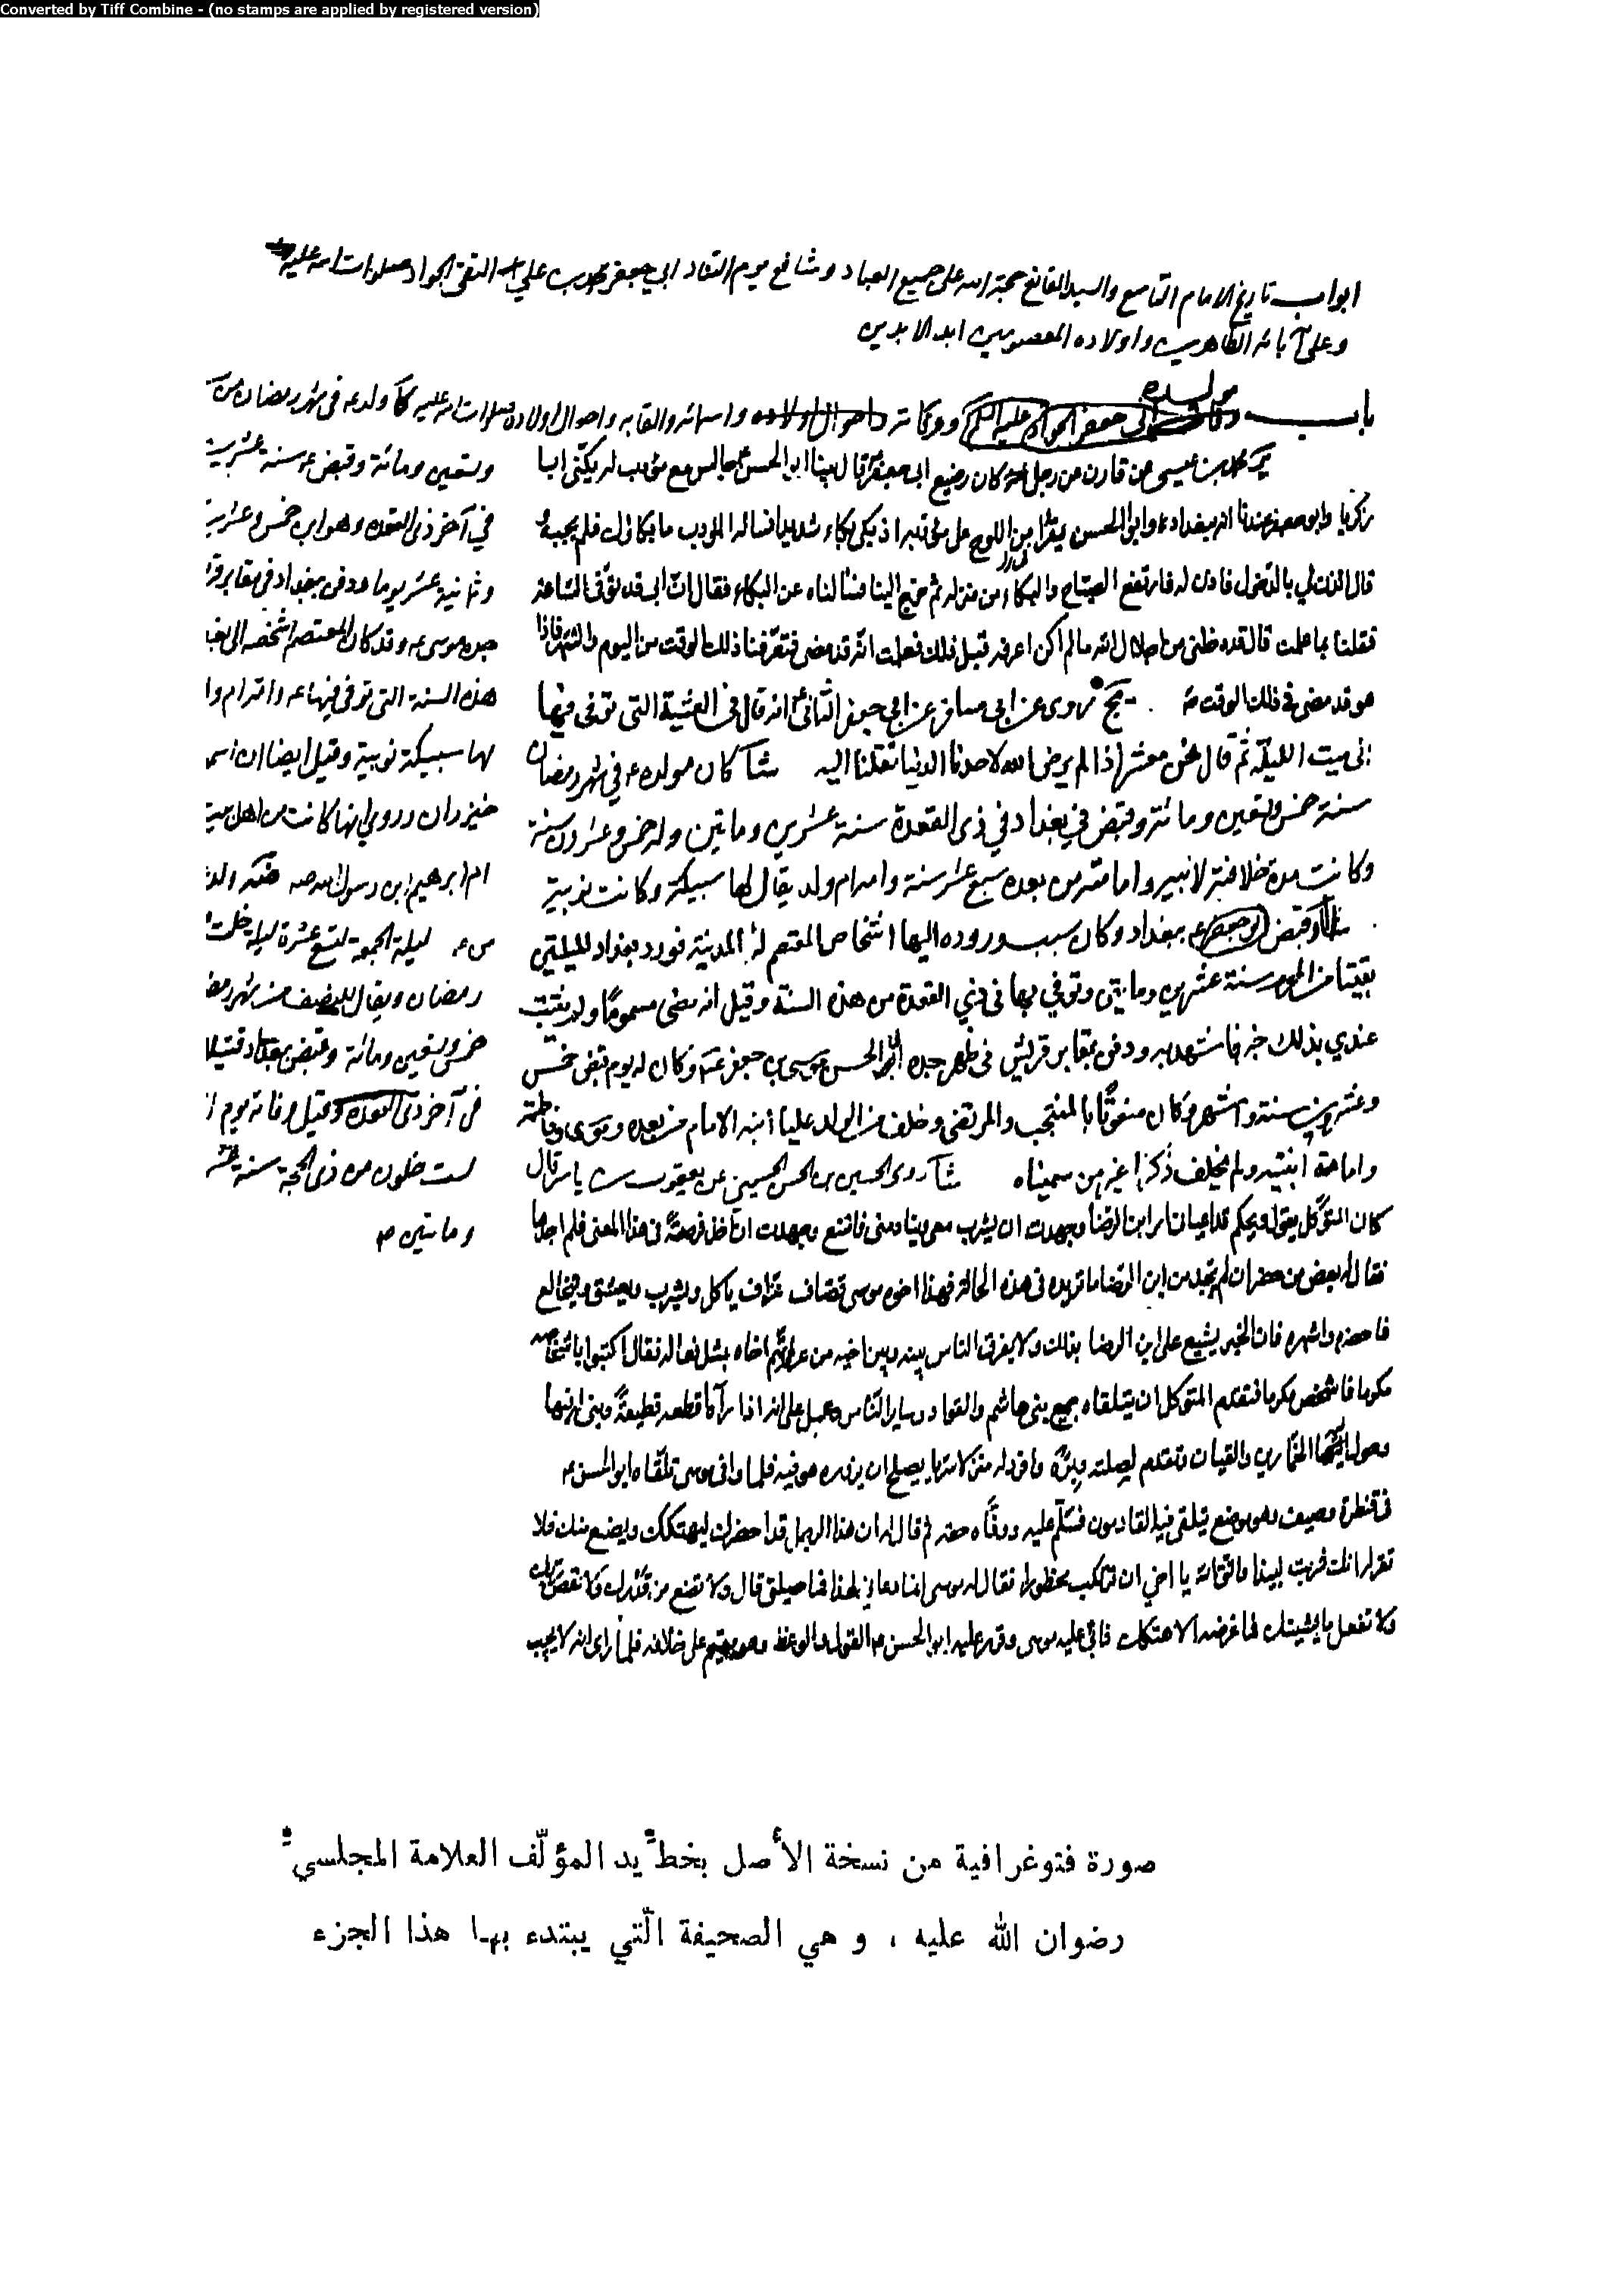 Converted by Tiff Combine - (no stamps are applied by registered version)
ابواب تاريخ الامام التاسع والسيد القانع حجة الله على جميع العباد وشافع يوم التناد ابي جعفر محمد بن علي التقي الجواد صلوات الله عليه
وعلى آبائه الطاهرين واولاده المعصومين ابد الآبدين
باب مولده ووفاته واسمائه والقابه واحوال اولاده صلوات الله عليه كا ولد ع في شهر رمضان من
محمد بن عيسى عن قارن عن رجل كان رضيع ابي جعفر قال بينا ابو الحسن جالس مع مؤدب له يكنى ابا
زكريا وابو جعفر عندنا انه ببغداد وابو الحسن يقرأ من اللوح على مؤدبه اذ بكى بكاء شديدا فسأله المؤدب ما بكاؤك فلم يجبه
قال ائذن لي بالدخول فاذن له فارتفع الصياح والبكاء من منزله ثم خرج الينا فسألناه عن البكاء فقال ان ابي قد توفي الساعة
فقلنا بما علمت قال قد دخلني من اجلال الله ما لم اكن اعرفه قبل ذلك فعلمت انه قد مضى فتعرفنا ذلك الوقت من اليوم والشهر فاذا
هو قد مضى في ذلك الوقت يج روى عن ابي مسافر عن ابي جعفر الثاني انه قال في العشية التي توفي فيها
اني ميت الليلة ثم قال نحن معشر اذا لم يرض الله لاحدنا الدنيا نقلنا اليه شا كان مولده ع في شهر رمضان
سنة خمس وتسعين ومائة وقبض في بغداد في ذي القعدة سنة عشرين ومأتين وله خمس وعشرون سنة
وكانت مدة خلافته لابيه وامامته من بعده سبع عشر سنة وامه ام ولد يقال لها سبيكة وكانت نوبية
شا وقبض ببغداد وكان سبب وروده اليها اشخاص المعتصم له من المدينة فورد بغداد لليلتين
بقيتا من المحرم سنة عشرين ومأتين وتوفي بها في ذي القعدة من هذه السنة وقيل انه مضى مسموما ولم يثبت
عندي بذلك خبر فاشهد به ودفن بمقابر قريش في ظهر جده ابي الحسن موسى بن جعفر ع وكان له يوم قبض خمس
وعشرون سنة واشهر وكان منعوتا بالمنتجب والمرتضى وخلف من الولد عليا ابنه الامام من بعده وموسى وفاطمة
وامامة ابنتيه ولم يخلف ذكرا غير من سميناه شا روى الحسين بن الحسن الحسيني عن يعقوب بن ياسر قال
كان المتوكل يقول ويحكم قد اعياني امر ابن الرضا وجهدت ان يشرب معي وينادمني فامتنع وجهدت ان آخذ فرصة في هذا المعنى فلم اجدها
فقال له بعض من حضر ان لم تجد من ابن الرضا ما تريده في هذه الحالة فهذا اخوه موسى قصاف عزاف يأكل ويشرب ويعشق ويتخالع
فاحضره واشهره فان الخبر يشيع على ابن الرضا بذلك ولا يفرق الناس بينه وبين اخيه من عرفه اتهم اخاه بمثل فعاله فقال اكتبوا باشخاصه
مكرما فاشخص مكرما فتقدم المتوكل ان يتلقاه جميع بني هاشم والقواد وسائر الناس وعمل على انه اذا رآه اقطعه قطيعة وبنى له فيها
وحول اليها الخمارين والقيان وتقدم لصلته وبره وافرد له منزلا سريا يصلح ان يزوره هو فيه فلما وافى موسى تلقاه ابو الحسن ع
في قنطرة وصيف وهو موضع يتلقى فيه القادمون فسلم عليه ووفاه حقه ثم قال له ان هذا الرجل قد احضرك ليهتكك ويضع منك فلا
تقر له انك شربت نبيذا واتق الله يا اخي ان ترتكب محظورا فقال له موسى انما دعاني لهذا فما حيلتي قال ولا تضع من قدرك ولا تعص ربك
ولا تفعل ما يشينك فما غرضه الا هتكك فابى عليه موسى وكرر عليه ابو الحسن ع القول والوعظ وهو مقيم على خلافه فلما رأى انه لا يجيب
وتسعين ومائة وقبض ع سنة عشرين
في آخر ذي القعدة وهو ابن خمس وعشرين
وثمانية عشر يوما ودفن ببغداد في مقابر
جده موسى ع وقد كان المعتصم اشخصه الى
هذه السنة التي توفي فيها ع وامه ام
لها سبيكة نوبية وقيل ايضا ان
خيزران وروي انها كانت من اهل بيت
ام ابرهيم ابن رسول الله
ليلة الجمعة لتسع عشرة ليلة خلت
رمضان ويقال للنصف من شهر
خمس وتسعين ومائة وقبض ببغداد قتيلا
في آخر ذي القعدة وقيل وفاته يوم
لست خلون من ذي الحجة سنة
ومأتين
صورة فتوغرافية من نسخة الأصل بخط يد المؤلّف العلامة المجلسي
رضوان الله عليه ، و هي الصحيفة الّتي يبتدء بها هذا الجزء